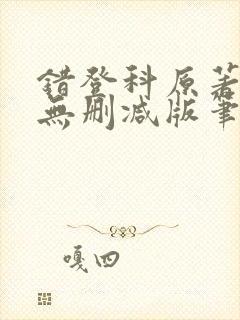 錯登科原著
無刪減版筆
嘎四